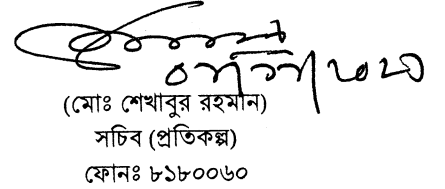 (মোঃ শেখাবুর রহমান)
সচিব (প্রতিকল্প)
ফোনঃ ৮১৮০০৬০